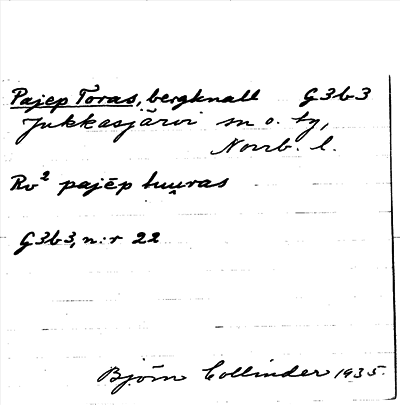 Pajep Toras, bergknall G3b3
Jukkasjärvi sn o. tg,
Norrb. l.
Rv² pajēp tuu̯ras
G3b3, n:r 22
Björn Collinder 1935.